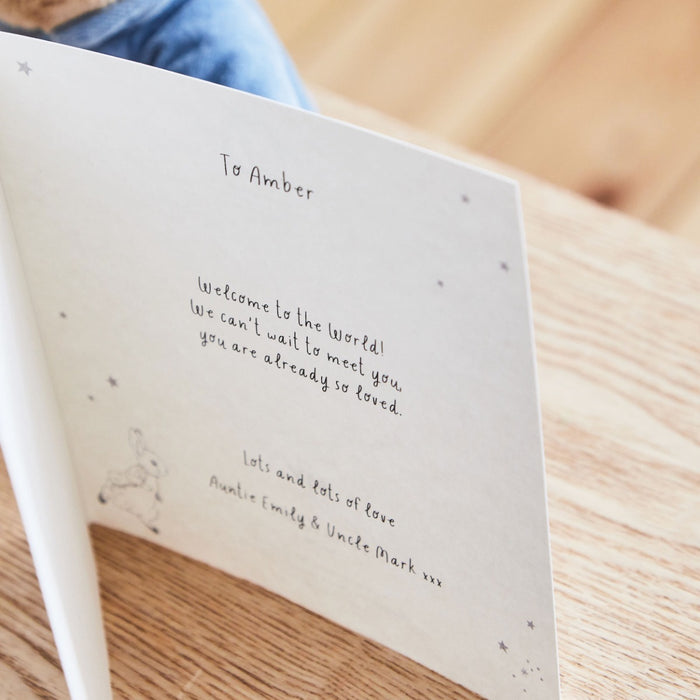 To Amber
Welcome to the World!
We can't wait to meet you,
you are already so loved.
Lots and lots of love
Auntie Emily & Uncle Mark xxx